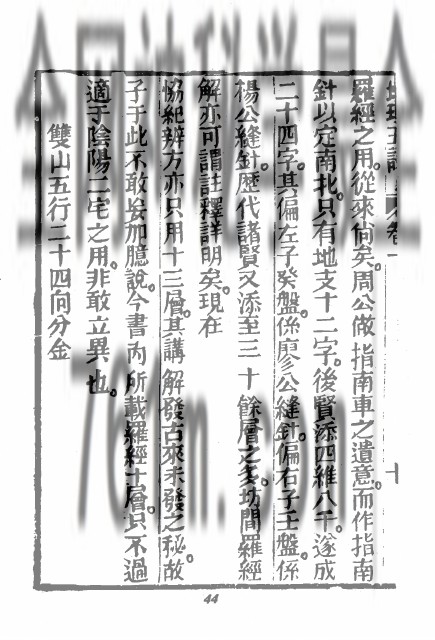 羅經之用。從來尚矣。周公做指南車之遺意。而作指南
針以定南北。只有地支十二字。後賢添四維八干。遂成
二十四字。其偏左子癸盤。係廖公縫針。偏右子壬盤。係
楊公縫針。歷代諸賢又添至三十餘層之多。坊間羅經
解亦可謂註釋詳明矣。現在
協紀辨方亦只用十三層。其講解發古來未發之秘。故
子于此不敢妄加臆說。今書內所載羅經十層。只不過
適于陰陽二宅之用。非敢立異也。
雙山五行二十四向分金
44